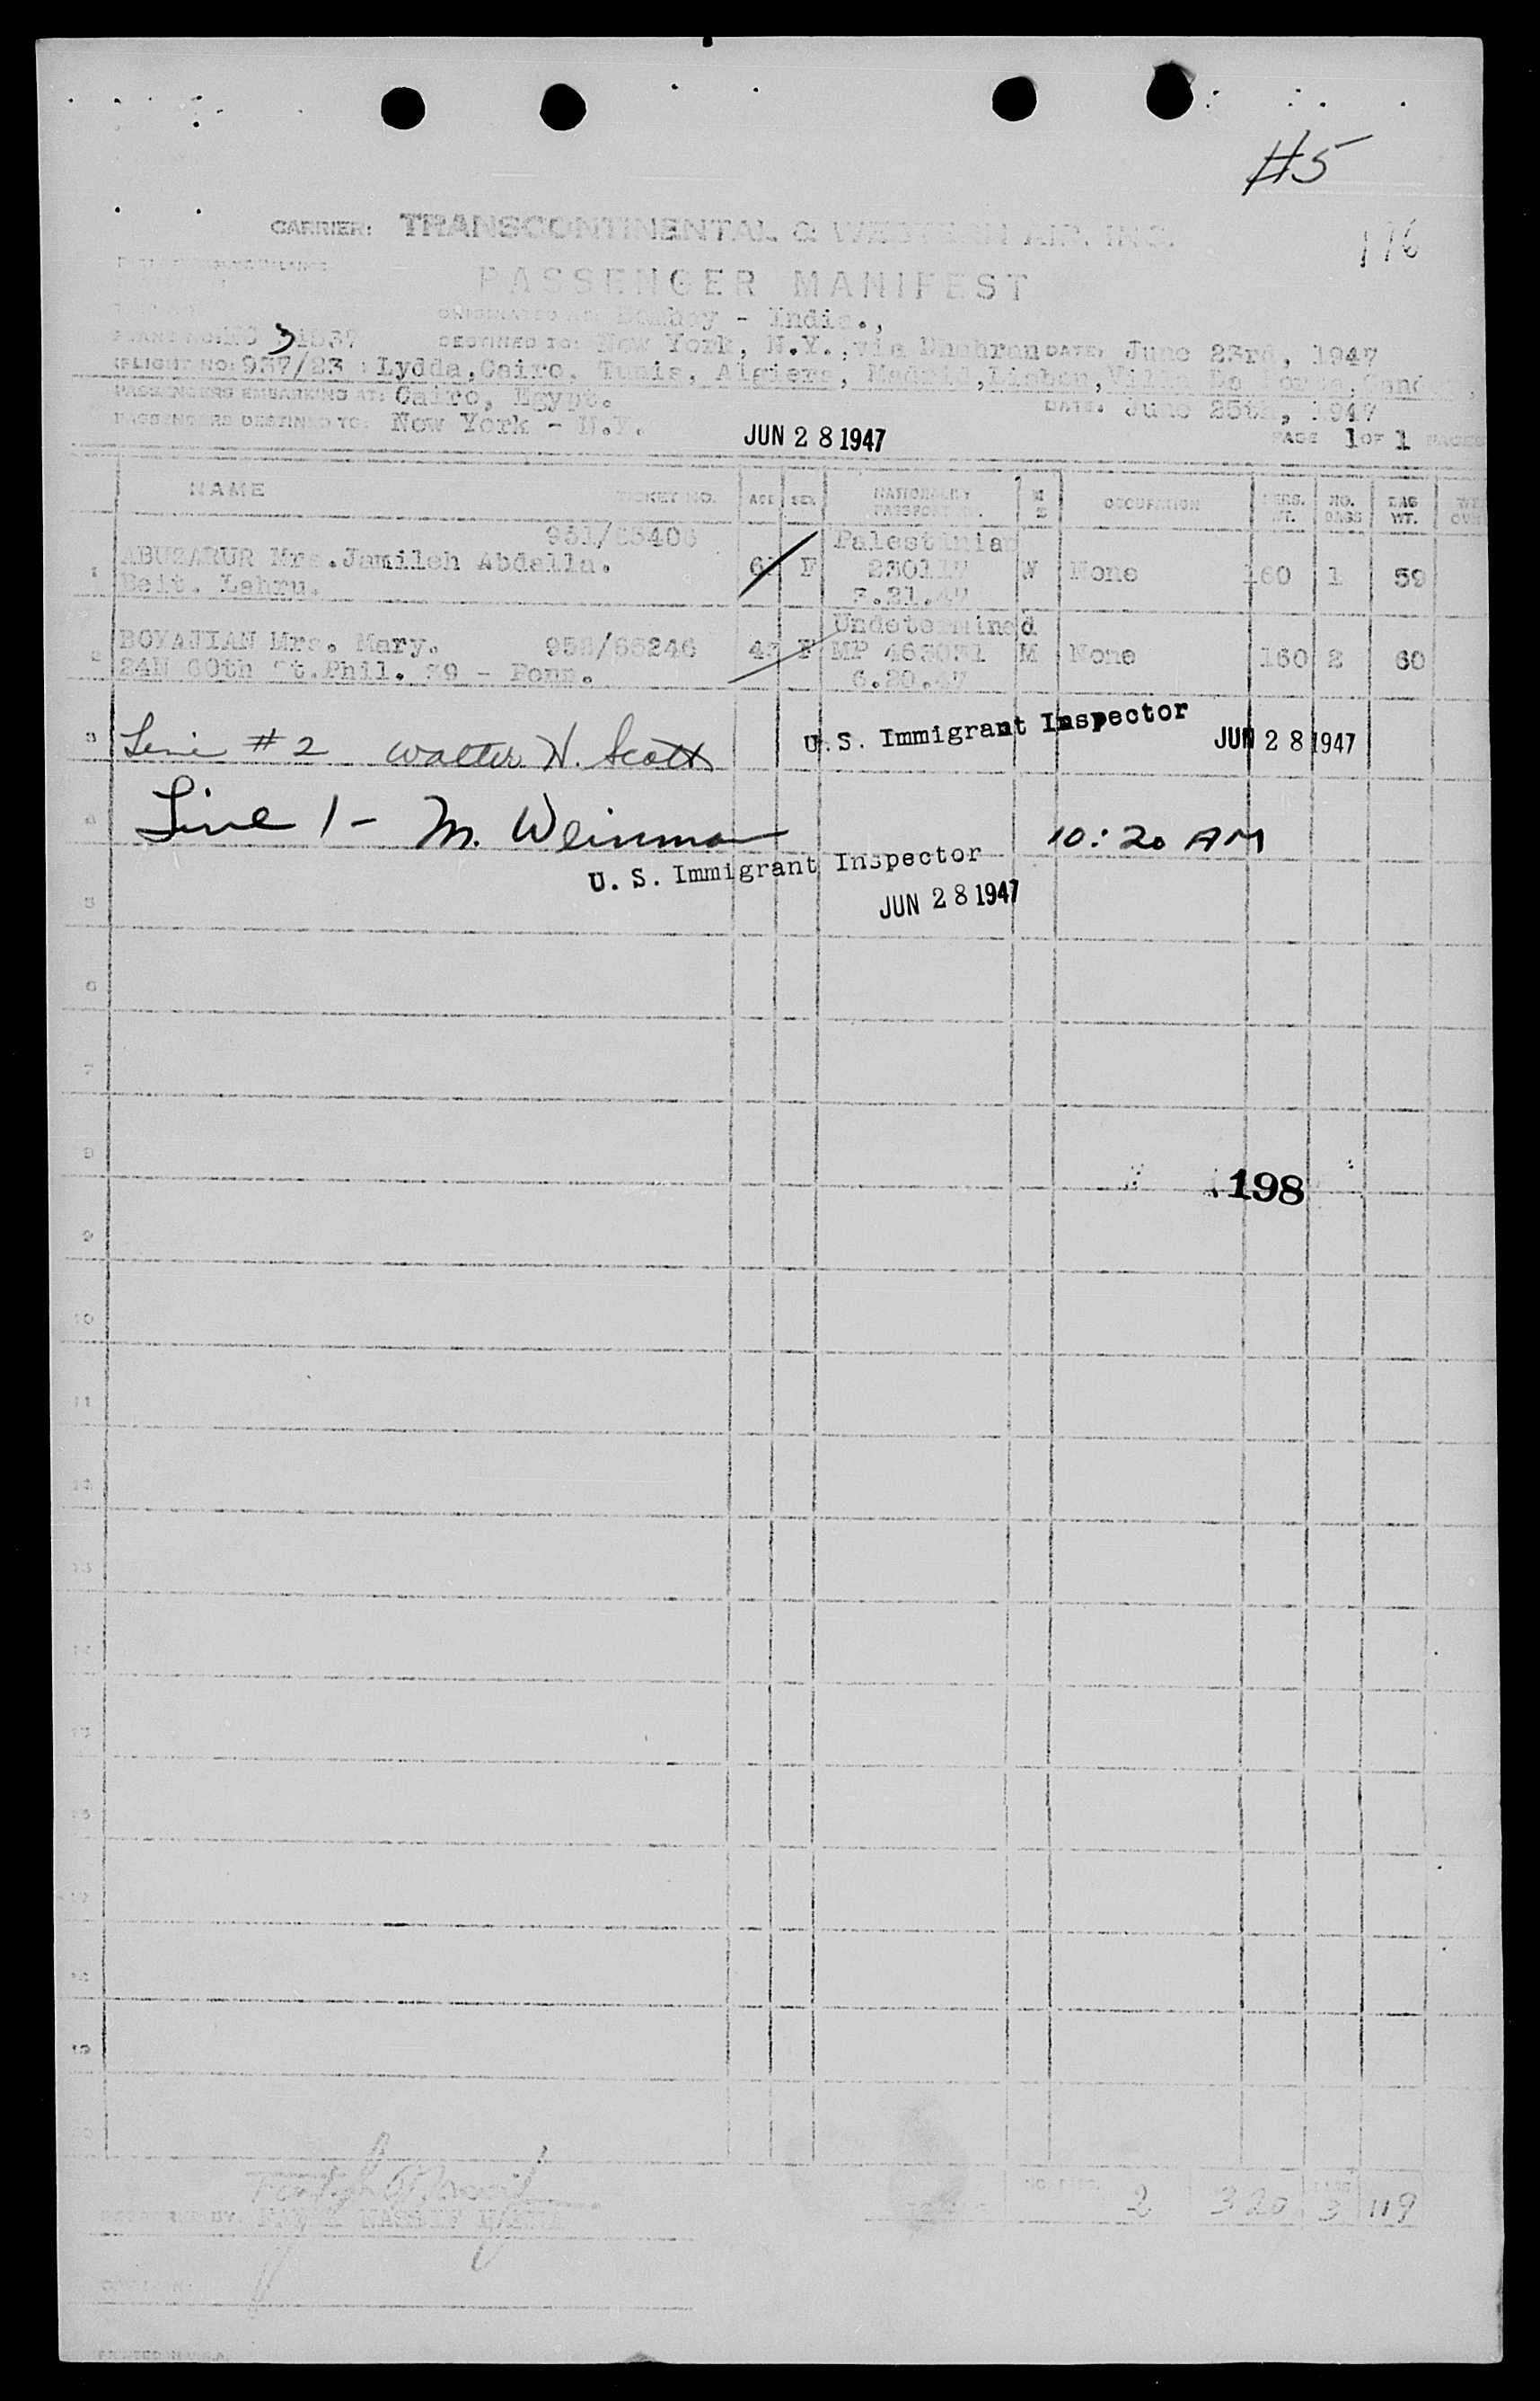 #5
CARRIER: TRANSCONTINENTAL & WESTERN AIR, INC.
116
PASSENGER MANIFEST
ORIGINATED AT: Bombay - India.,
PLANE NO: NC 31537
DESTINED TO: New York, N.Y.,via Dhahran DATE: June 23rd, 1947
FLIGHT NO: 937/23 Lydda,Cairo, Tunis, Algiers, Madrid,Lisbon,
PASSENGERS EMBARKING AT: Cairo, Egypt. DATE. June 25th, 1947
PASSENGERS DESTINED TO: New York - N.Y.
JUN 28 1947
PAGE 1 OF 1 PAGES
NAME TICKET NO. AGE SEX NATIONALITY PASSPORT NO. M S OCCUPATION PERS. WT. NO. BAGS BAG WT.
Palestinian
1 Mrs.Jamileh Abdalla. F W None 160 1 59
Beit.
Undetermined
2 BOYAJIAN Mrs. Mary. 953/65246 F MP 463031 M None 160 2 60
24N 60th St.Phil. 39 - Penn. 6.20.47
3 Line #2 Walter H. Scott U.S. Immigrant Inspector JUN 28 1947
4 Line 1 - M. Weinman 10:20 AM
U. S. Immigrant Inspector
5 JUN 28 1947
6
7
8
198
9
10
11
12
13
14
15
16
17
18
19
20
2 320 3 119
PREPARED BY: